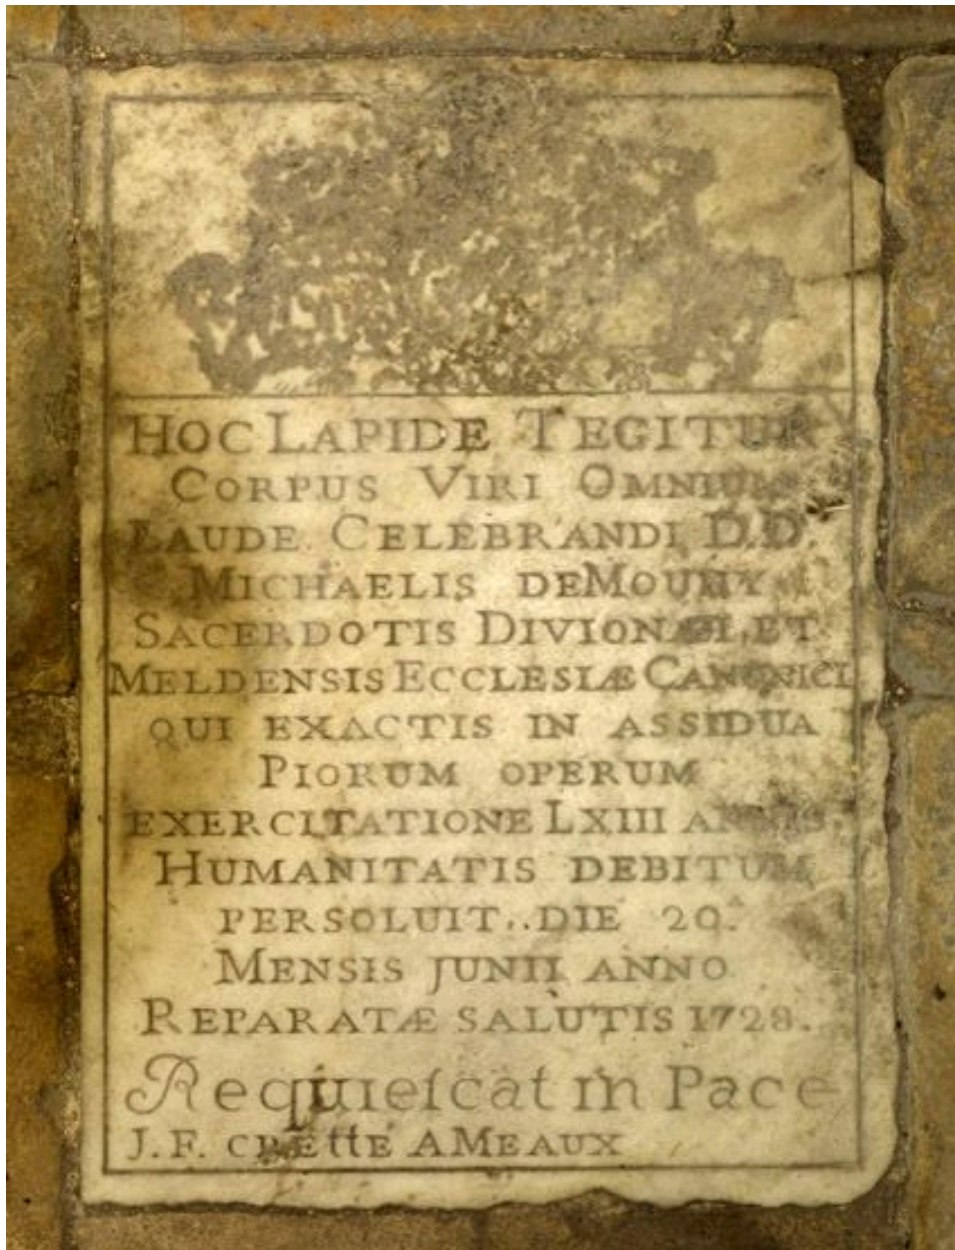 HOC LAPIDE TEGITUR
CORPUS VIRI OMNIUM
LAUDE CELEBRANDI D.D.
MICHAELIS DE
SACERDOTIS ET
MELDENSIS ECCLESIÆ CANONICI
QUI EXACTIS IN ASSIDUA
PIORUM OPERUM
EXERCITATIONE LXIII ANNIS
HUMANITATIS DEBITUM
PERSOLUIT..DIE 20.
MENSIS JUNII ANNO
REPARATÆ SALUTIS 1728.
Requieſcat in Pace
J.F. A MEAUX